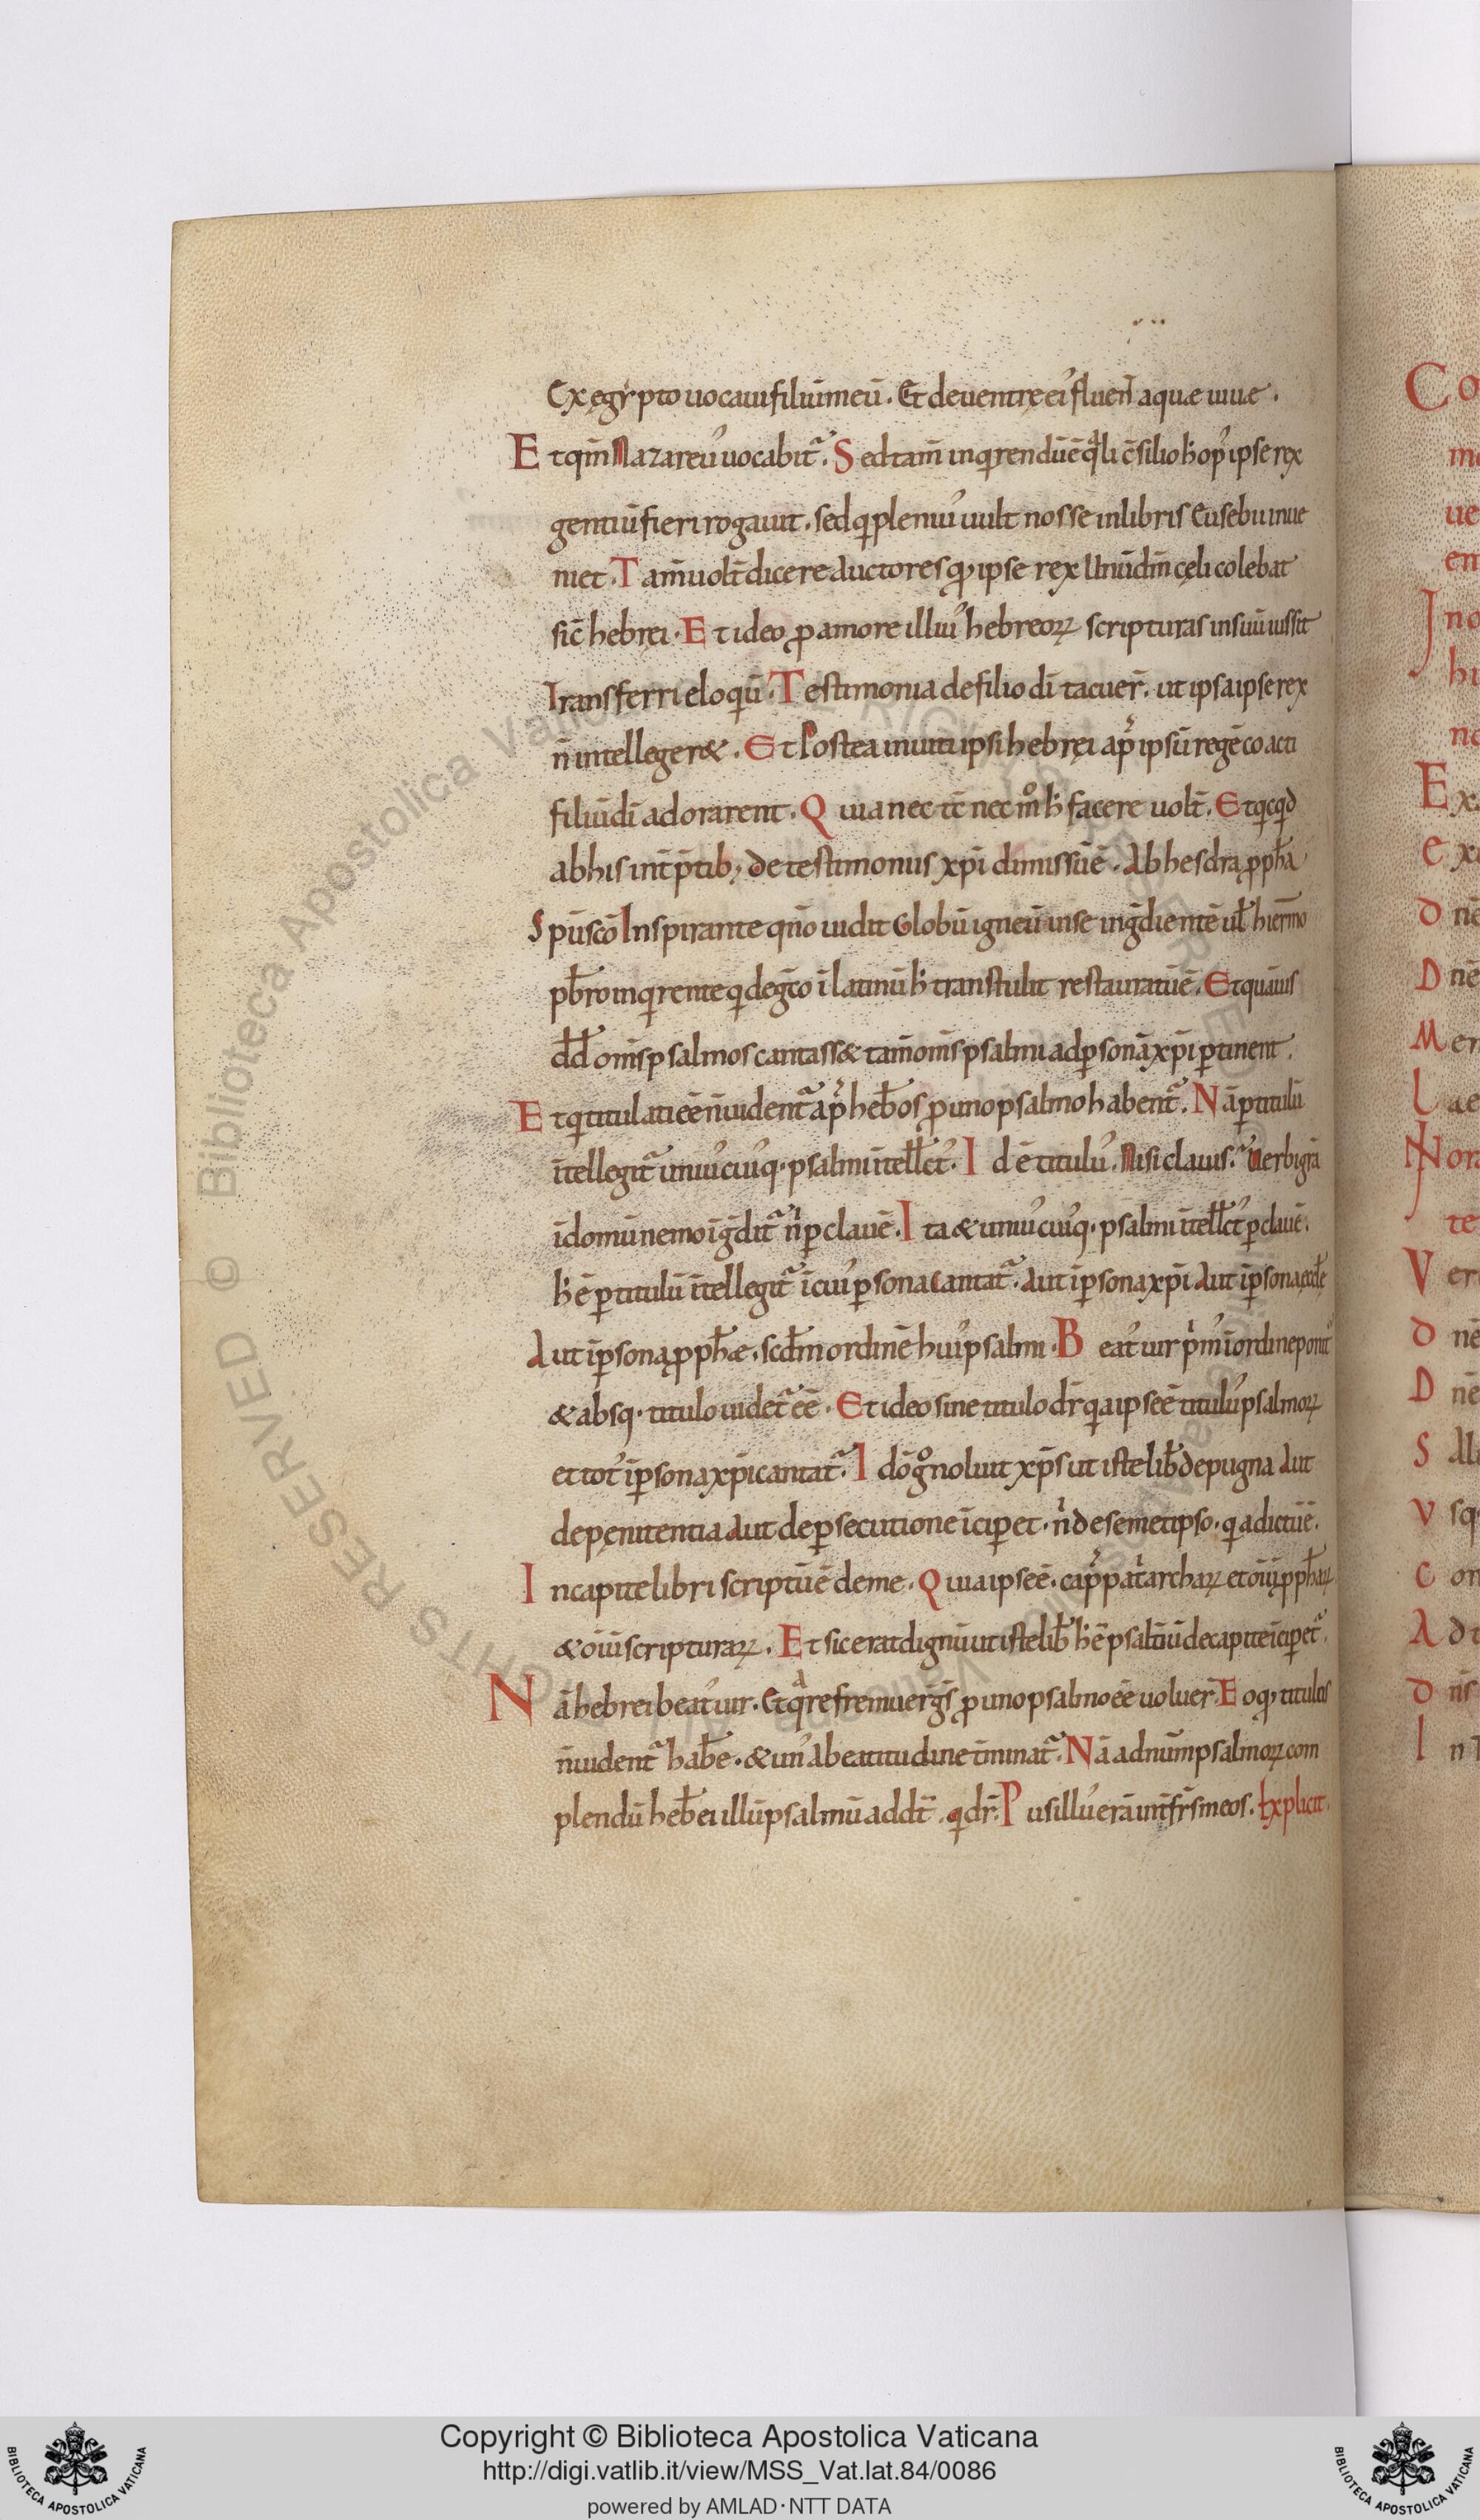 Exęgypto uocaui filiū meū. Et deuentrę ei᾽ fluent̄ aquæ uiuę.
Et qm̄ Nazareu᾽ uocabit᷑. Sed tam̄ inqrendū ē qli c̄silio h̄ op᾽ ipse rex
gentiū fieri rogauit. sed q plenius uult nosse inlibris Eusebii inue
niet. Tam̄ uolt̄ dicere auctores qɔ ipse rex Unū dm̄ cęli colebat
sic̄ hebręi. Et ideo ꝓ amore illiu᾽ hebreoꝝ scripturas insuū iussit
Transferri eloqiū. Testimonia defilio dī tacuer̄. ut ipsa ipse rex
n̄ intelleger&. Et Postea inuiti ipsi hebręi ap᷑ ipsū regē coacti
filiū dī adorarent. Quia nec tc̄ nec mº h̄ facere uolt̄. Et qcqd
abhis int̄p̄tib; de testimoniis xp̄i dimissū ē. Ab hesdra ꝓph̄a
Sp̄u sc̄o Inspirante qn̄o uidit Globū igneū inse ingdientē ut̄ hier̄mo
pb̄ro inqrente q degc̄o ī latinū h̄ transtulit restauratū ē. Et quāuis
dd̄ om̄s psalmos cantass& tam̄ om̄s psalmi ad psonā xp̄i ꝑtinent.
Et q titulati eē n̄ uident᷑ ap᷑ heb̄os ꝓ uno psalmo habent᷑. Nā ꝑ titulū
ītellegit᷑ uniu᾽cui᾽q· psalmi ītell̄ct᾽. Id ē titulu᾽. Nisi clauis. Uerbi grā
ī domū nemo īgdit᷑ n̄ ꝑ clauē. Ita & uniu᾽cui᾽q· psalmi ītell̄ct᾽ ꝑ clauē.
h̄ ē ꝑ titulū ītellegit᷑ ī cui᾽ psona cantat᷑. Aut ī psona xp̄i Aut ī psona ęccl̄ę
Aut ī psona ꝓph̄æ. scd̄m ordinē hui᾽ psalmi. Beat᾽ uir pm᾽ ī ordine ponit᷑
& absq· titulo uidet᷑ eē. Et ideo sine titulo dr̄ qa ipse ē titulu᾽ psalmoꝝ
et tot᾽ ī psona xp̄i cantat᷑. Id c̄gº noluit xp̄s ut iste lib̄ de pugna Aut
de pęnitentia aut de psecutione īciperet. n̄ de semetipso. qa dictū ē.
In capite libri scriptū ē de me. Quia ipse ē. cap᷑ pat᷑archaꝝ et oīū ꝓph̄aꝝ
& oīū scripturaꝝ. Et sic erat dignū ut iste lib̄ h̄ ē psalt̄iū decapite īciperet᷑.
Nā hebrei beat᾽ uir. Et qre fremuer̄ gs̄ ꝓ uno psalmo eē uoluer̄. Eo qɔ titulos
n̄ uident᷑ hab̄e. & un᾽ Abeatitudine t̄minat᷑. Nā ad num̄ psalmoꝝ com
plendū heb̄ei illū psalmū addt̄. q dr̄. Pusillu᾽ erā int̄ fr̄s meos. Explicit.
Copyright © Biblioteca Apostolica Vaticana
http://digi.vatlib.it/view/MSS_Vat.lat.84/0086
powered by AMLAD·NTT DATA